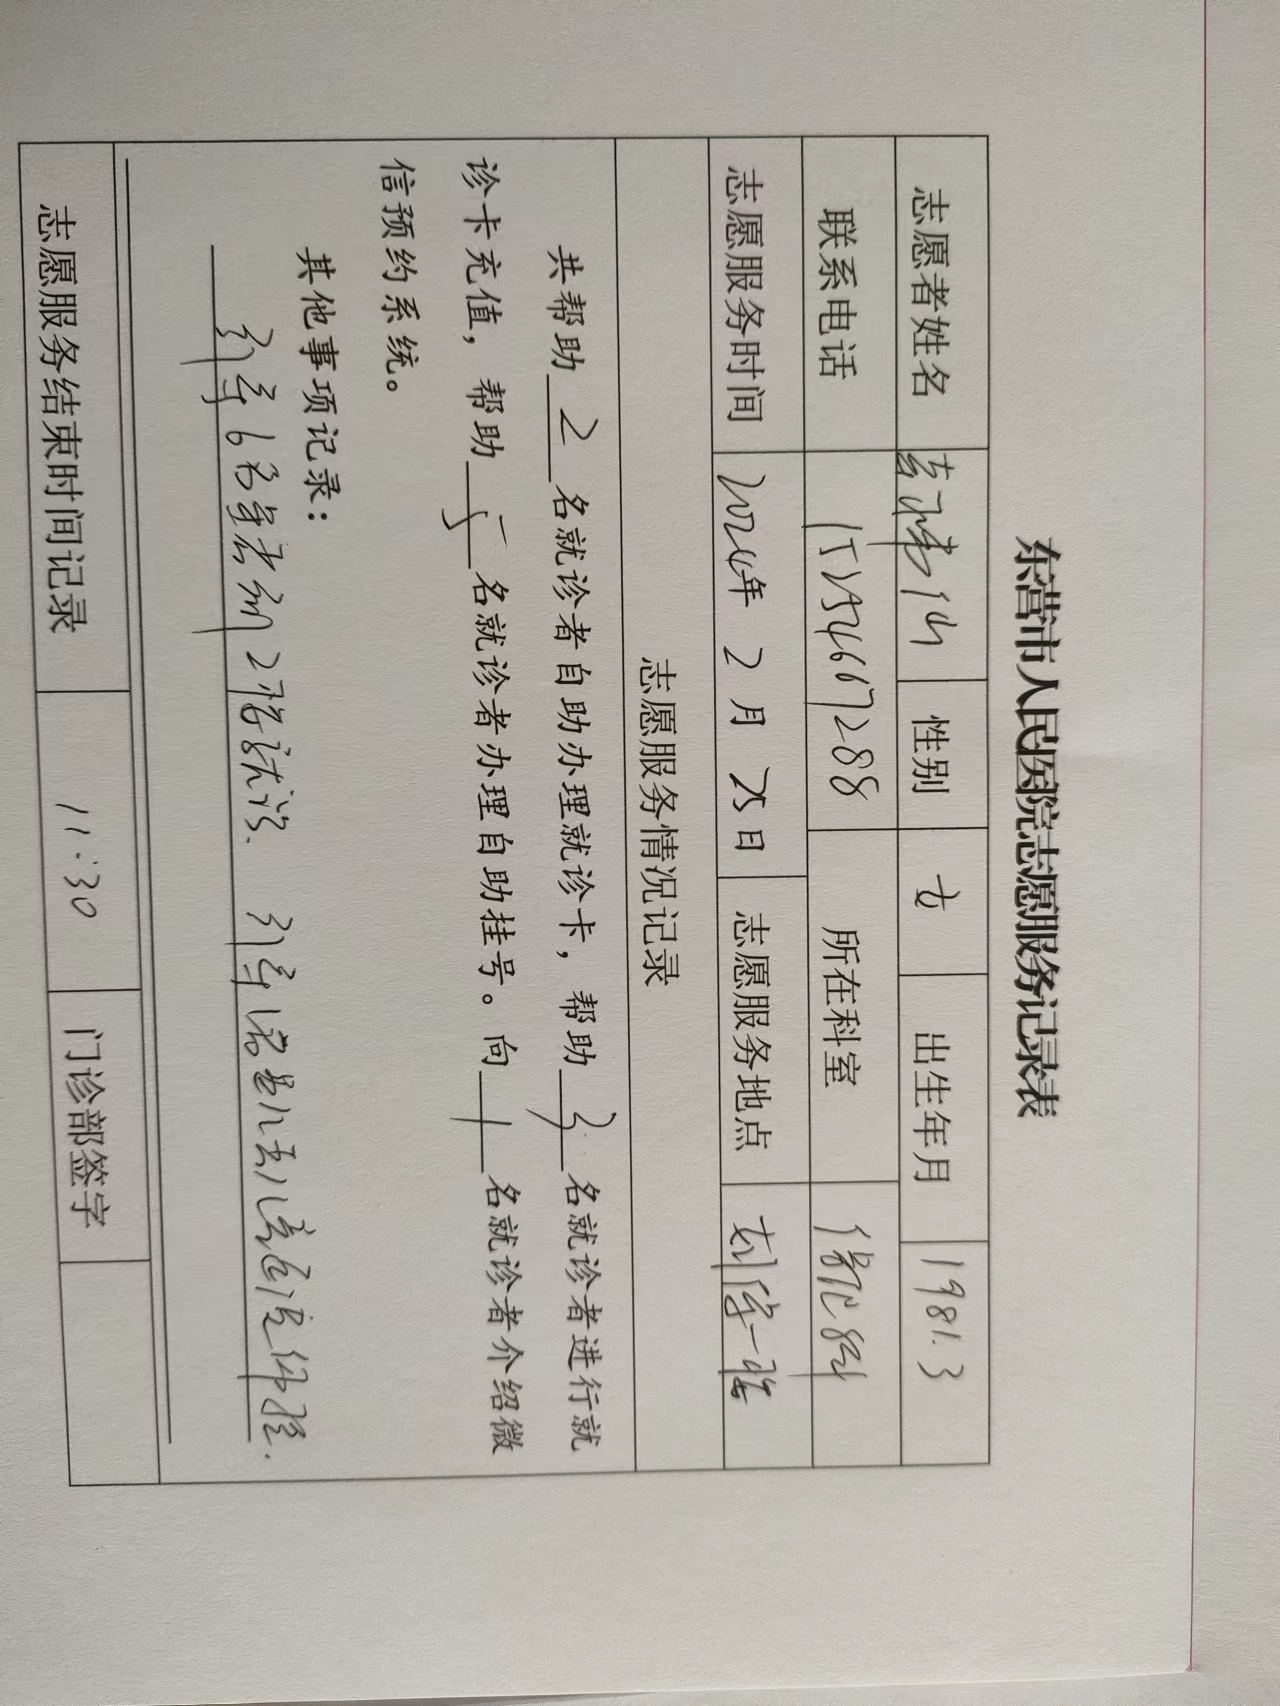 东营市人民医院志愿服务记录表
志愿者姓名 性别 女 出生年月 1981.3
联系电话 15254667288 所在科室 保健科
志愿服务时间 2024年 2月 25日 志愿服务地点
志愿服务情况记录
共帮助 2 名就诊者自助办理就诊卡，帮助 3 名就诊者进行就
诊卡充值，帮助 5 名就诊者办理自助挂号。向 1 名就诊者介绍微
信预约系统。
其他事项记录：
引导6名患者到2楼就诊. 引导
志愿服务结束时间记录 11:30 门诊部签字